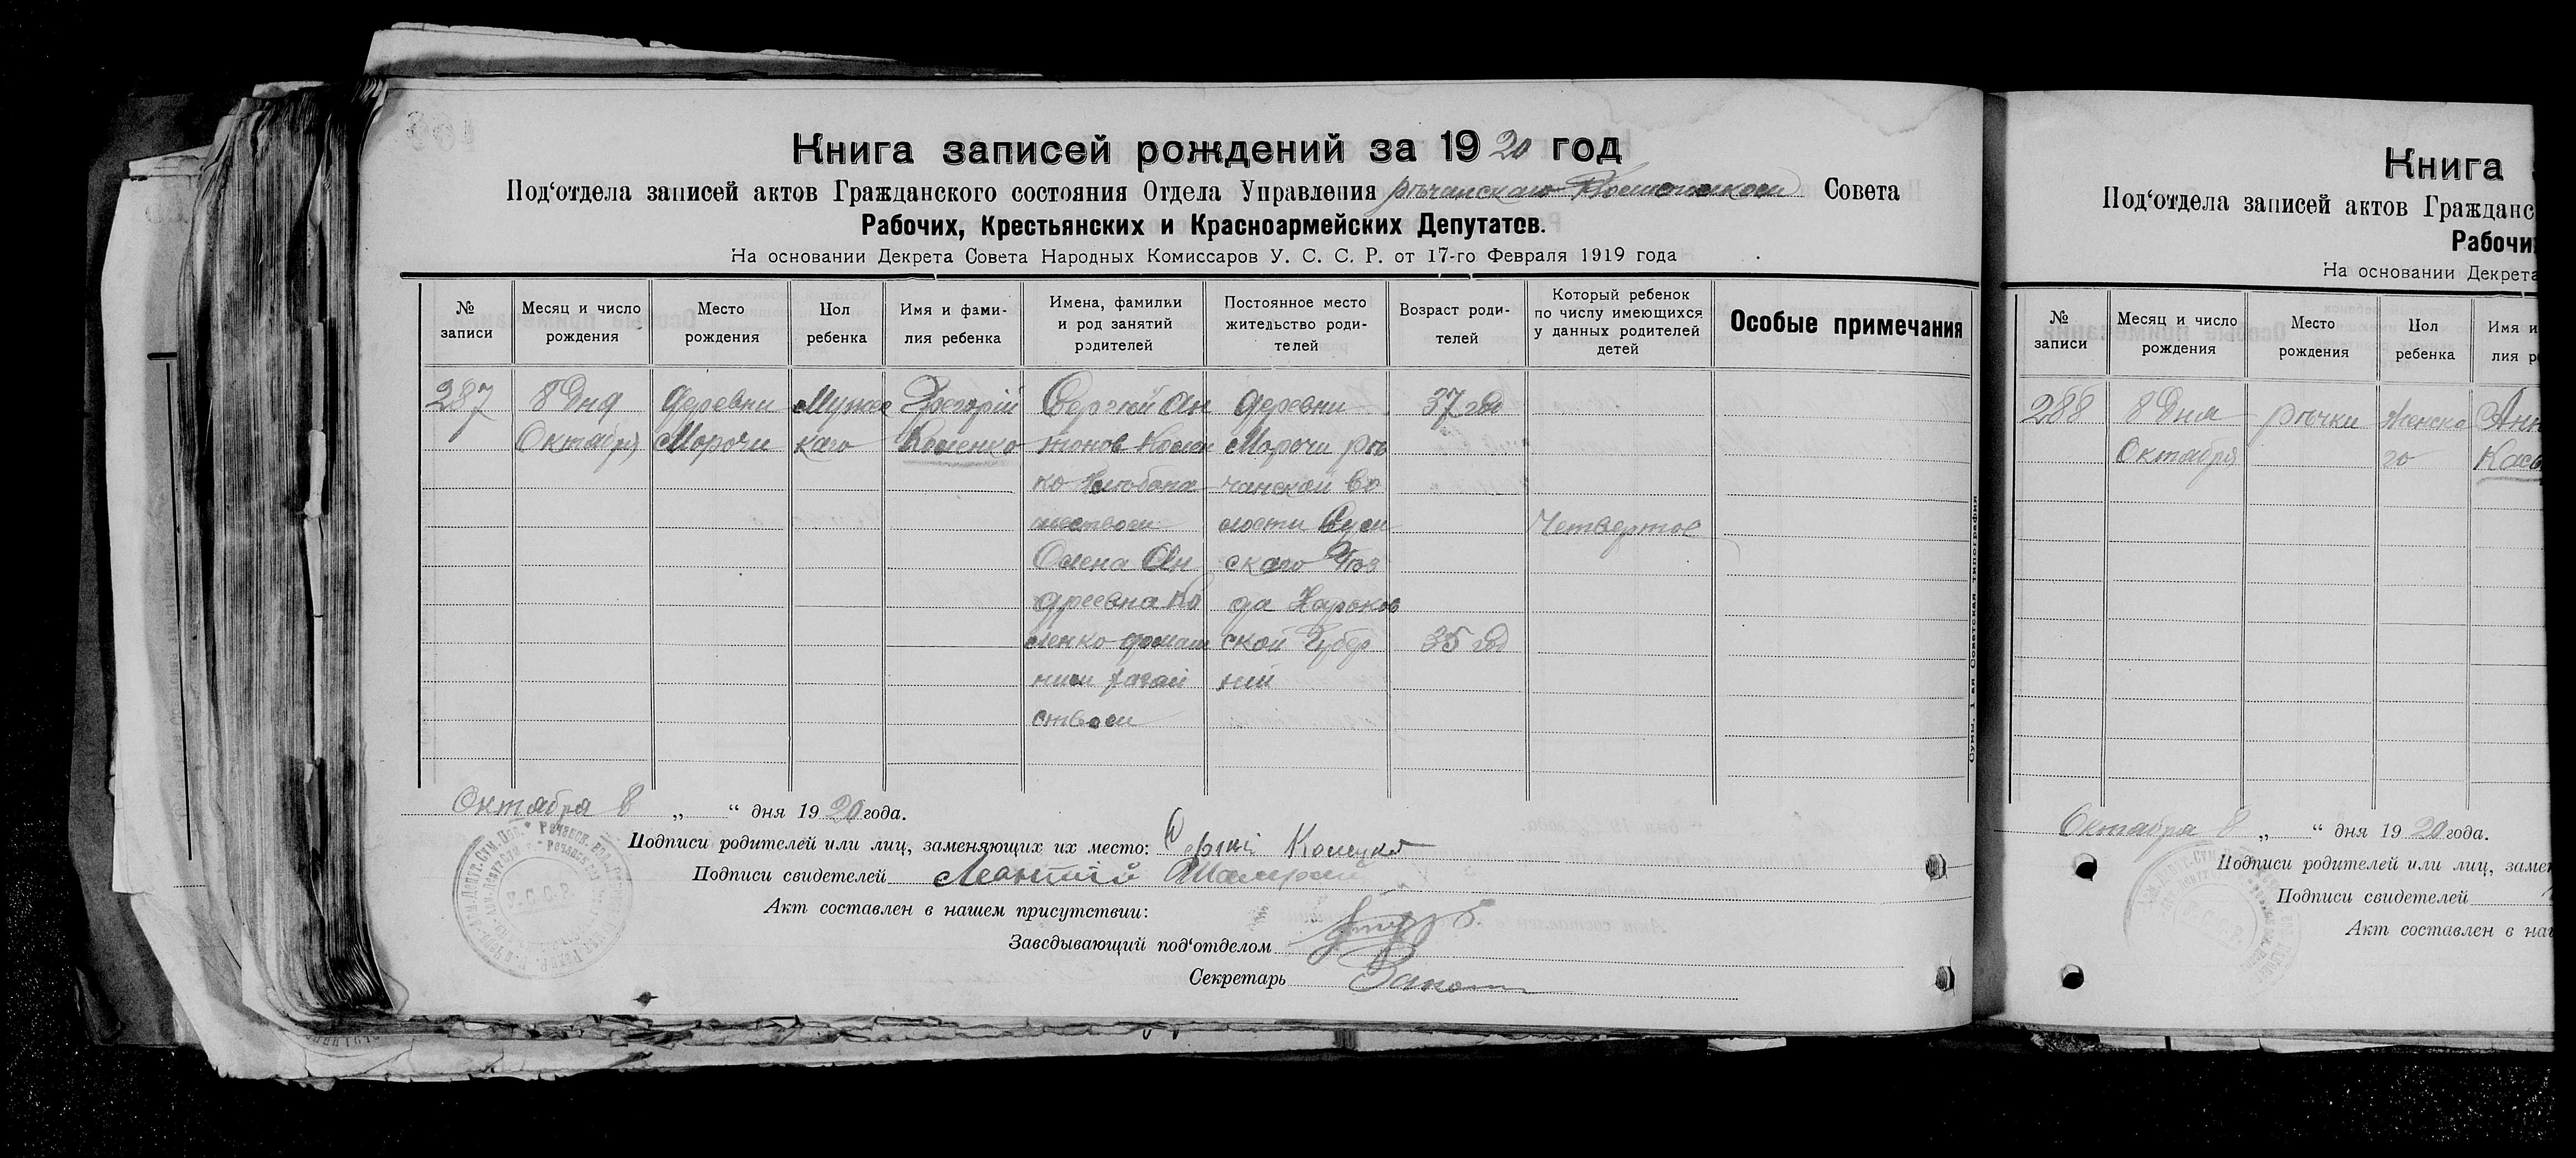 Книга записей рождений за 1920 год
Под‘отдела записей актов Гражданского состояния Отдела Управления Рѣчанскаго Совета
Рабочих, Крестьянских и Красноармейских Депутатов.
На основании Декрета Совета Народных Комиссаров У. С. С. Р. от 17-го Февраля 1919 года
№ записи
Месяц и число рождения
Место рождения
Пол ребенка
Имя и фамилия ребенка
Имена, фамилии и род занятий родителей
Постоянное место жительство родителей
Возраст родителей
Который ребенок по числу имеющихся у данных родителей детей
Особые примечания
287
8 дня
Октября
Деревни
Морочи
Мужс
каго
Григорій
Коленко
Сергей Ан
тонов Колен
ко Хлебопа
шеством
Олена Ан
дреевна Ко
ленко домаш
ним хазяй
ством
Деревни
Морочи Рѣ
чанской Во
лости Сум
скаго Уѣз
да Харьков
ской Губер
ний
37 год
35 год
Четвертое
Октября 8 „ “ дня 1920 года.
Подписи родителей или лиц, заменяющих их место: Сергій
Подписи свидетелей
Акт составлен в нашем присутствии:
Заведывающий под‘отделом
Секретарь
У.С.С.Р.
Сумы, 1-ая Советская типография
Книга
Под‘отдела записей актов Гражданс
Рабочи
На основании Декрета
№ записи
Месяц и число рождения
Место рождения
Пол ребенка
Имя и
лия р
288
8 дня
Октября
Рѣчки
Женска
го
Анн
Кас
Октября 8 „ “ дня 1920 года.
Подписи родителей или лиц, заме
Подписи свидетелей
Акт составлен в на